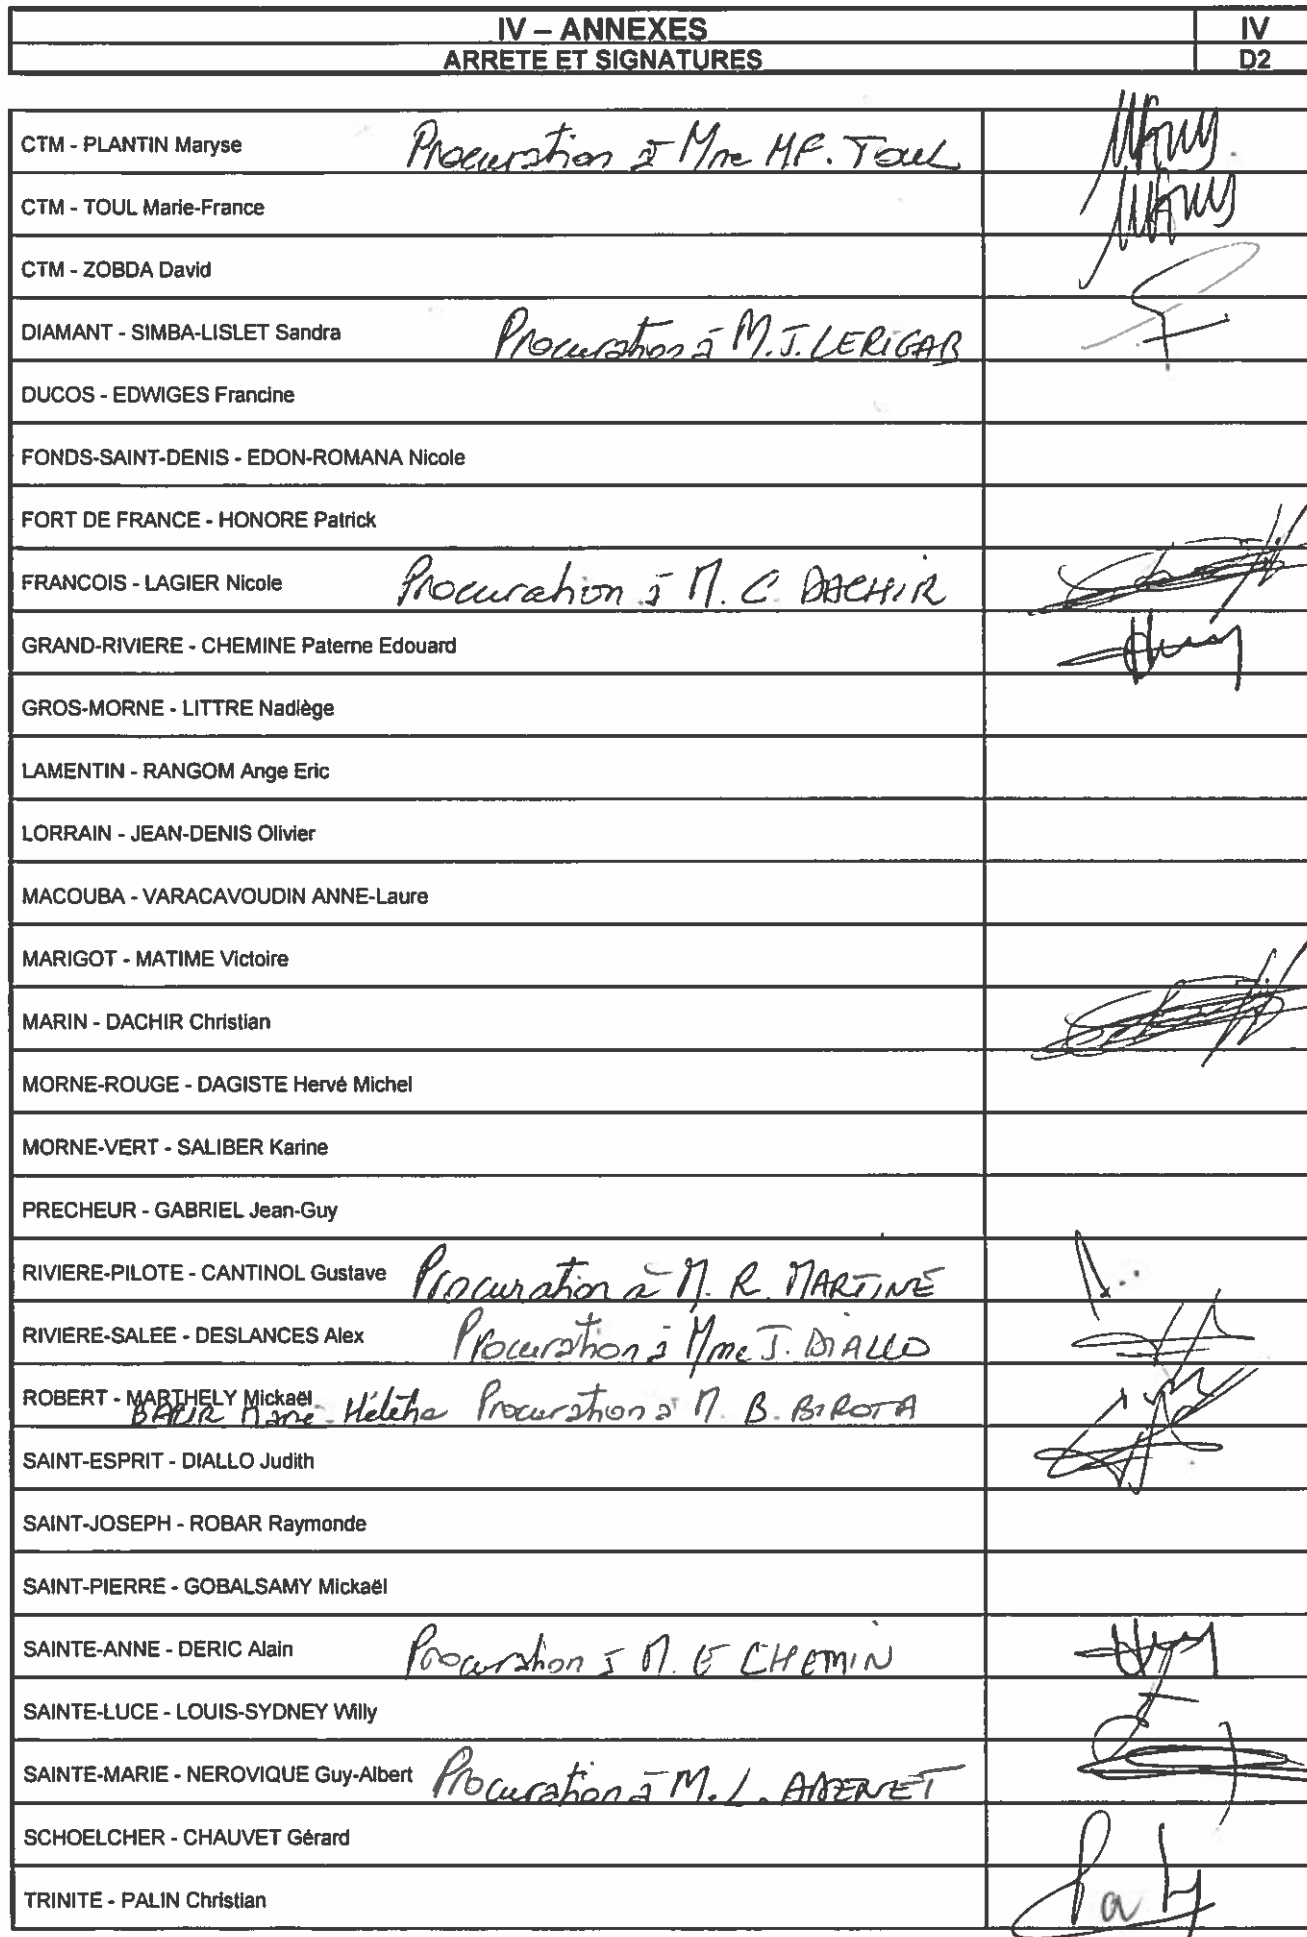 IV – ANNEXES IV
ARRETE ET SIGNATURES D2
CTM - PLANTIN Maryse Procuration à Mme MF. Toul
CTM - TOUL Marie-France
CTM - ZOBDA David
DIAMANT - SIMBA-LISLET Sandra Procuration à M. J. LERIGAB
DUCOS - EDWIGES Francine
FONDS-SAINT-DENIS - EDON-ROMANA Nicole
FORT DE FRANCE - HONORE Patrick
FRANCOIS - LAGIER Nicole Procuration à M. C. DACHIR
GRAND-RIVIERE - CHEMINE Paterne Edouard
GROS-MORNE - LITTRE Nadiège
LAMENTIN - RANGOM Ange Eric
LORRAIN - JEAN-DENIS Olivier
MACOUBA - VARACAVOUDIN ANNE-Laure
MARIGOT - MATIME Victoire
MARIN - DACHIR Christian
MORNE-ROUGE - DAGISTE Hervé Michel
MORNE-VERT - SALIBER Karine
PRECHEUR - GABRIEL Jean-Guy
RIVIERE-PILOTE - CANTINOL Gustave Procuration à M. R. MARTINE
RIVIERE-SALEE - DESLANCES Alex Procuration à Mme J. DIALLO
ROBERT - MARTHELY Mickaël
Procuration à M. B. BIROTA
SAINT-ESPRIT - DIALLO Judith
SAINT-JOSEPH - ROBAR Raymonde
SAINT-PIERRE - GOBALSAMY Mickaël
SAINTE-ANNE - DERIC Alain Procuration à M. E CHEMIN
SAINTE-LUCE - LOUIS-SYDNEY Willy
SAINTE-MARIE - NEROVIQUE Guy-Albert Procuration à M. L. ADENET
SCHOELCHER - CHAUVET Gérard
TRINITE - PALIN Christian